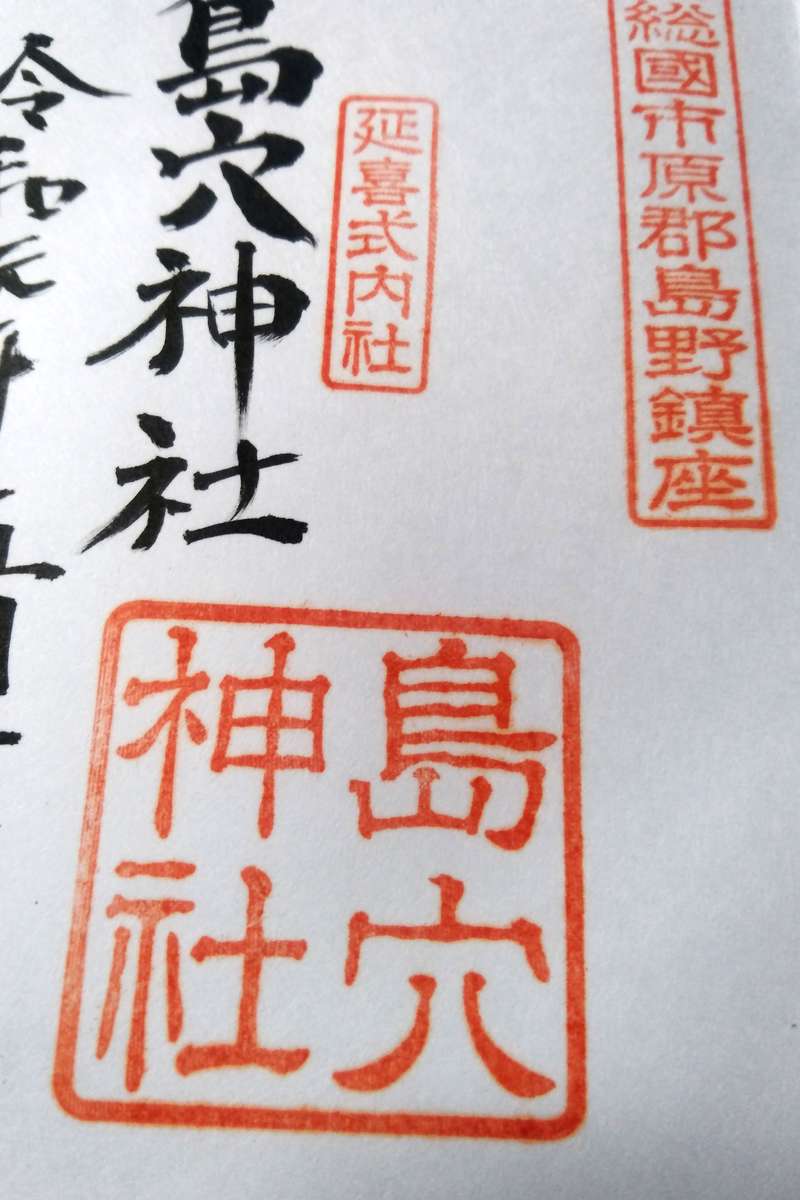 総國市原郡島野鎮座
延喜式内社
島穴神社
令和元年
島穴
神社